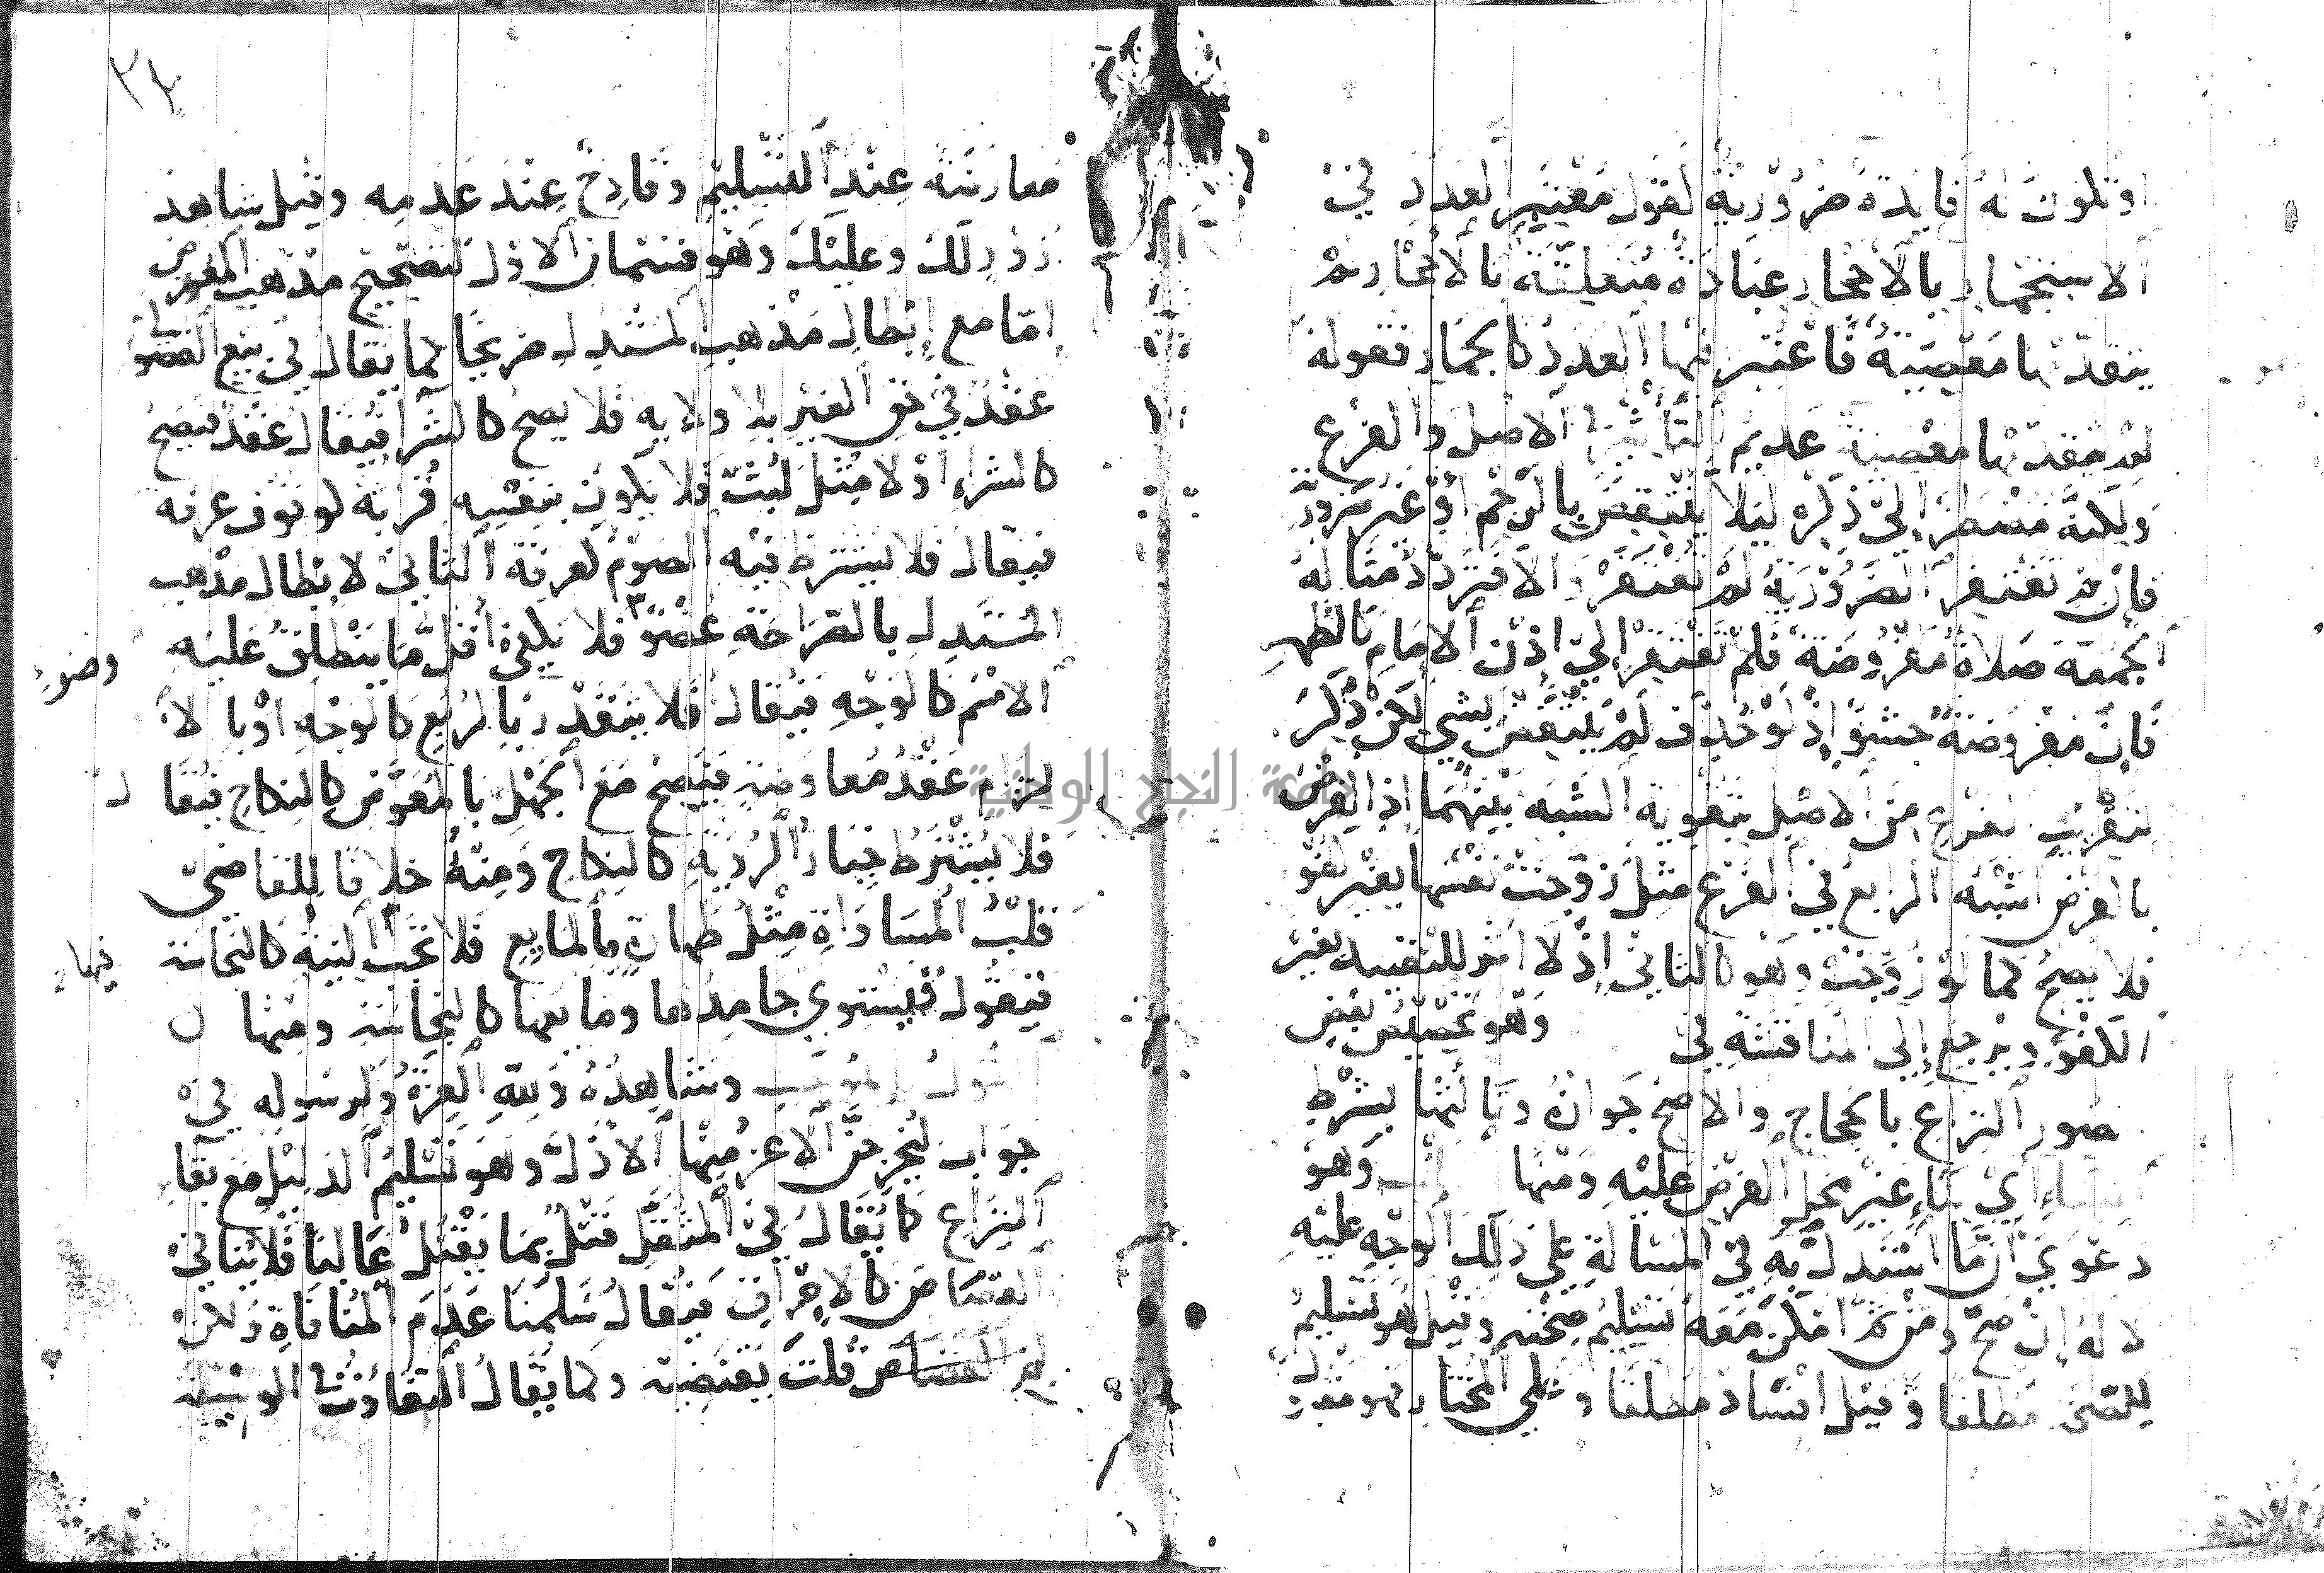 او تكون له فايدة ضرورية لقول معتبر العدد في
الاستجمار بالاحجار عبادة متعلقة بالاحجار لم
يتقدمها معصية فاعتبر فيها العدد كالجمار فقوله
لم يتقدمها معصية عديم التأثير في الاصل والفرع
ولكنه مضطر الي ذكره ليلا ينتقض بالرجم او غير ضرورية
فان لم تغتفر الضرورية لم تغتفر والا فتردد مثاله
الجمعة صلاة مفروضة فلم تفتقر الي اذن الامام كالظهر
فان مفروضة حشو اذ لو حذف لم ينتقض بشي لكن ذكر
لتقريب الفرع من الاصل بتقوية الشبه بينهما اذ الفرض
بالفرض اشبه الرابع في الفرع مثل زوجت نفسها بغير كفو
فلا يصح كما لو زوجت وهو كالثاني اذ لا اثر للتقييد بغير
الكفو ويرجع إلى المناقشة في وهو تخصيص بعض
صور النزاع بالحجاج والاصح جوازه وثالثها بشرط
البناء أي بناء غير محل الفرض عليه ومنها القلب وهو
دعوي أن ما استدل به في المسالة علي ذلك الوجه عليه
لا له إن صح ومن ثم امكن معه تسليم صحته وقيل هو تسليم
للصحة مطلقا وقيل افساد مطلقا وعلي المختار فهو مقبول
٣٤
معارضة عند التسليم وقادح عند عدمه وقيل شاهد
زور لك وعليك وهو قسمان الاول لتصحيح مذهب المعترض
إما مع إبطال مذهب المستدل صريحا كما يقال في بيع الفضولي
عقد في حق الغير بلا ولايه فلا يصح كالشرا فيقال عقد فيصح
كالشراء أو لا مثل لبث فلا يكون بنفسه قربة كوقوف عرفة
فيقال فلا يشترط فيه الصوم كعرفة الثاني لابطال مذهب
المستدل بالصراحة عضو فلا يكفي أقل ما ينطلق عليه
وضوء
الاسم كالوجه فيقال فلا يتقدر بالربع كالوجه او بالا
لتزام عقد معاوضة فيصح مع الجهل بالمعوض كالنكاح فيقال
فلا يشترط خيار الرؤية كالنكاح ومنه خلافا للقاضي
قلب المساواة مثل طهارة بالمايع فلا تجب النية كالنجاسة
فيها
فيقول فيستوي جامدها ومايعها كالنجاسة ومنها
القول بالموجب وشاهده ولله العزة ولرسوله في
جواب ليخرجن الاعز منها الاذل وهو تسليم الدليل مع بقا
النزاع كما يقال في المثقل قتل بما يقتل غالبا فلا ينافي
القصاص كالاحراق فيقال سلمنا عدم المنافاة ولكن
لم قلت يقتضيه وكما يقال التفاوت في الوسيلة